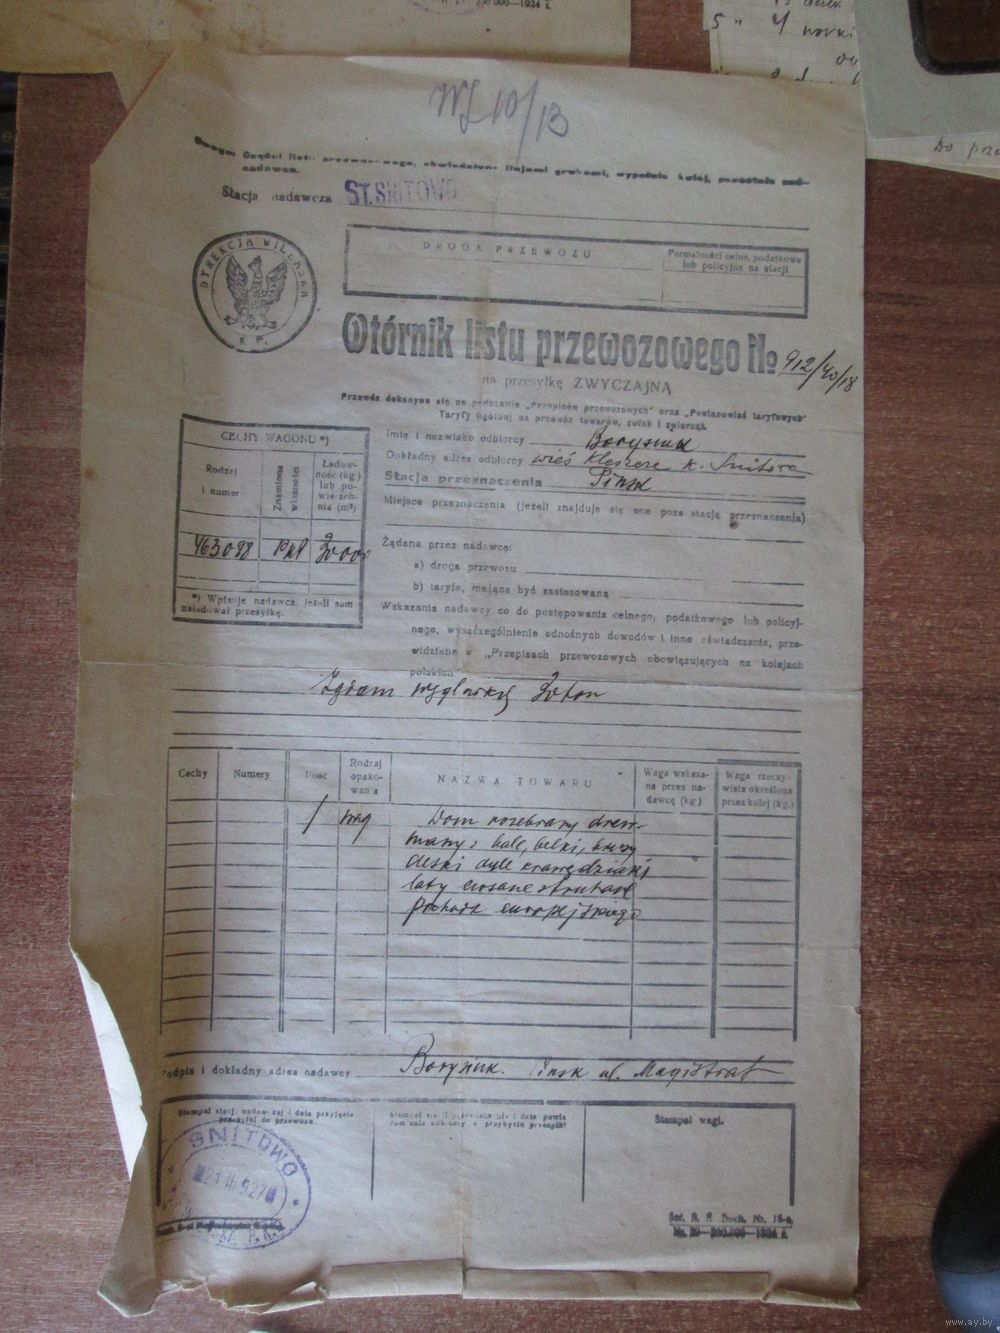 250.000—1924 r.
5 " 4
Do prze
WZ 10/13
Uwaga: Części listu przewozowego, obwiedzione linjami grubemi, wypełnia kolej, pozostałe zaś—
nadawca.
Stacja nadawcza ST. SNITOWO
DYREKCJA WILEŃSKA
K. P.
DROGA PRZEWOZU
Formalności celne, podatkowe
lub policyjne na stacji
Wtórnik listu przewozowego № 912/40/18
na przesyłkę ZWYCZAJNĄ
Przewóz dokonywa się na podstawie „Przepisów przewozowych" oraz „Postanowień taryfowych"
Taryfy Ogólnej na przewóz towarów, zwłok i zwierząt.
CECHY WAGONU *)
Rodzaj
i numer
Znamiona
własności
Ładow-
ność (kg.)
lub po-
wierzch-
nia (m²)
463098 PKP 20000
*) Wpisuje nadawca, jeżeli sam
naładował przesyłkę.
Imię i nazwisko odbiorcy Borysiuk
Dokładny adres odbiorcy wieś k. Snitowa
Stacja przeznaczenia Pinsk
Miejsce przeznaczenia (jeżeli znajduje się ono poza stacją przeznaczenia)
Żądana przez nadawcę:
a) droga przewozu
b) taryfa, mająca być zastosowaną
Wskazania nadawcy co do postępowania celnego, podatkowego lub policyj-
nego, wyszczególnienie odnośnych dowodów i inne oświadczenia, prze-
widziane w „Przepisach przewozowych obowiązujących na kolejach
polskich"
Żądam węglarkę 20 ton
Cechy
Numery
Ilość
Rodzaj
opako-
wania
NAZWA TOWARU
Waga wskaza-
na przez na-
dawcę (kg.)
Waga rzeczy-
wista określona
przez kolej (kg.)
1 wag Dom rozebrany drew-
niany: bale, belki,
deski dyle krawędziaki
łaty ciosane
pochodz. europejskiego
Podpis i dokładny adres nadawcy Borysiuk. Pinsk ul. Magistrat
Stempel stacji nadawczej i data przyjęcia
przesyłki do przewozu.
Stempel wagi.
SNITOWO
21 III 927
Ser. R. S. Doch. Nr. 16-a